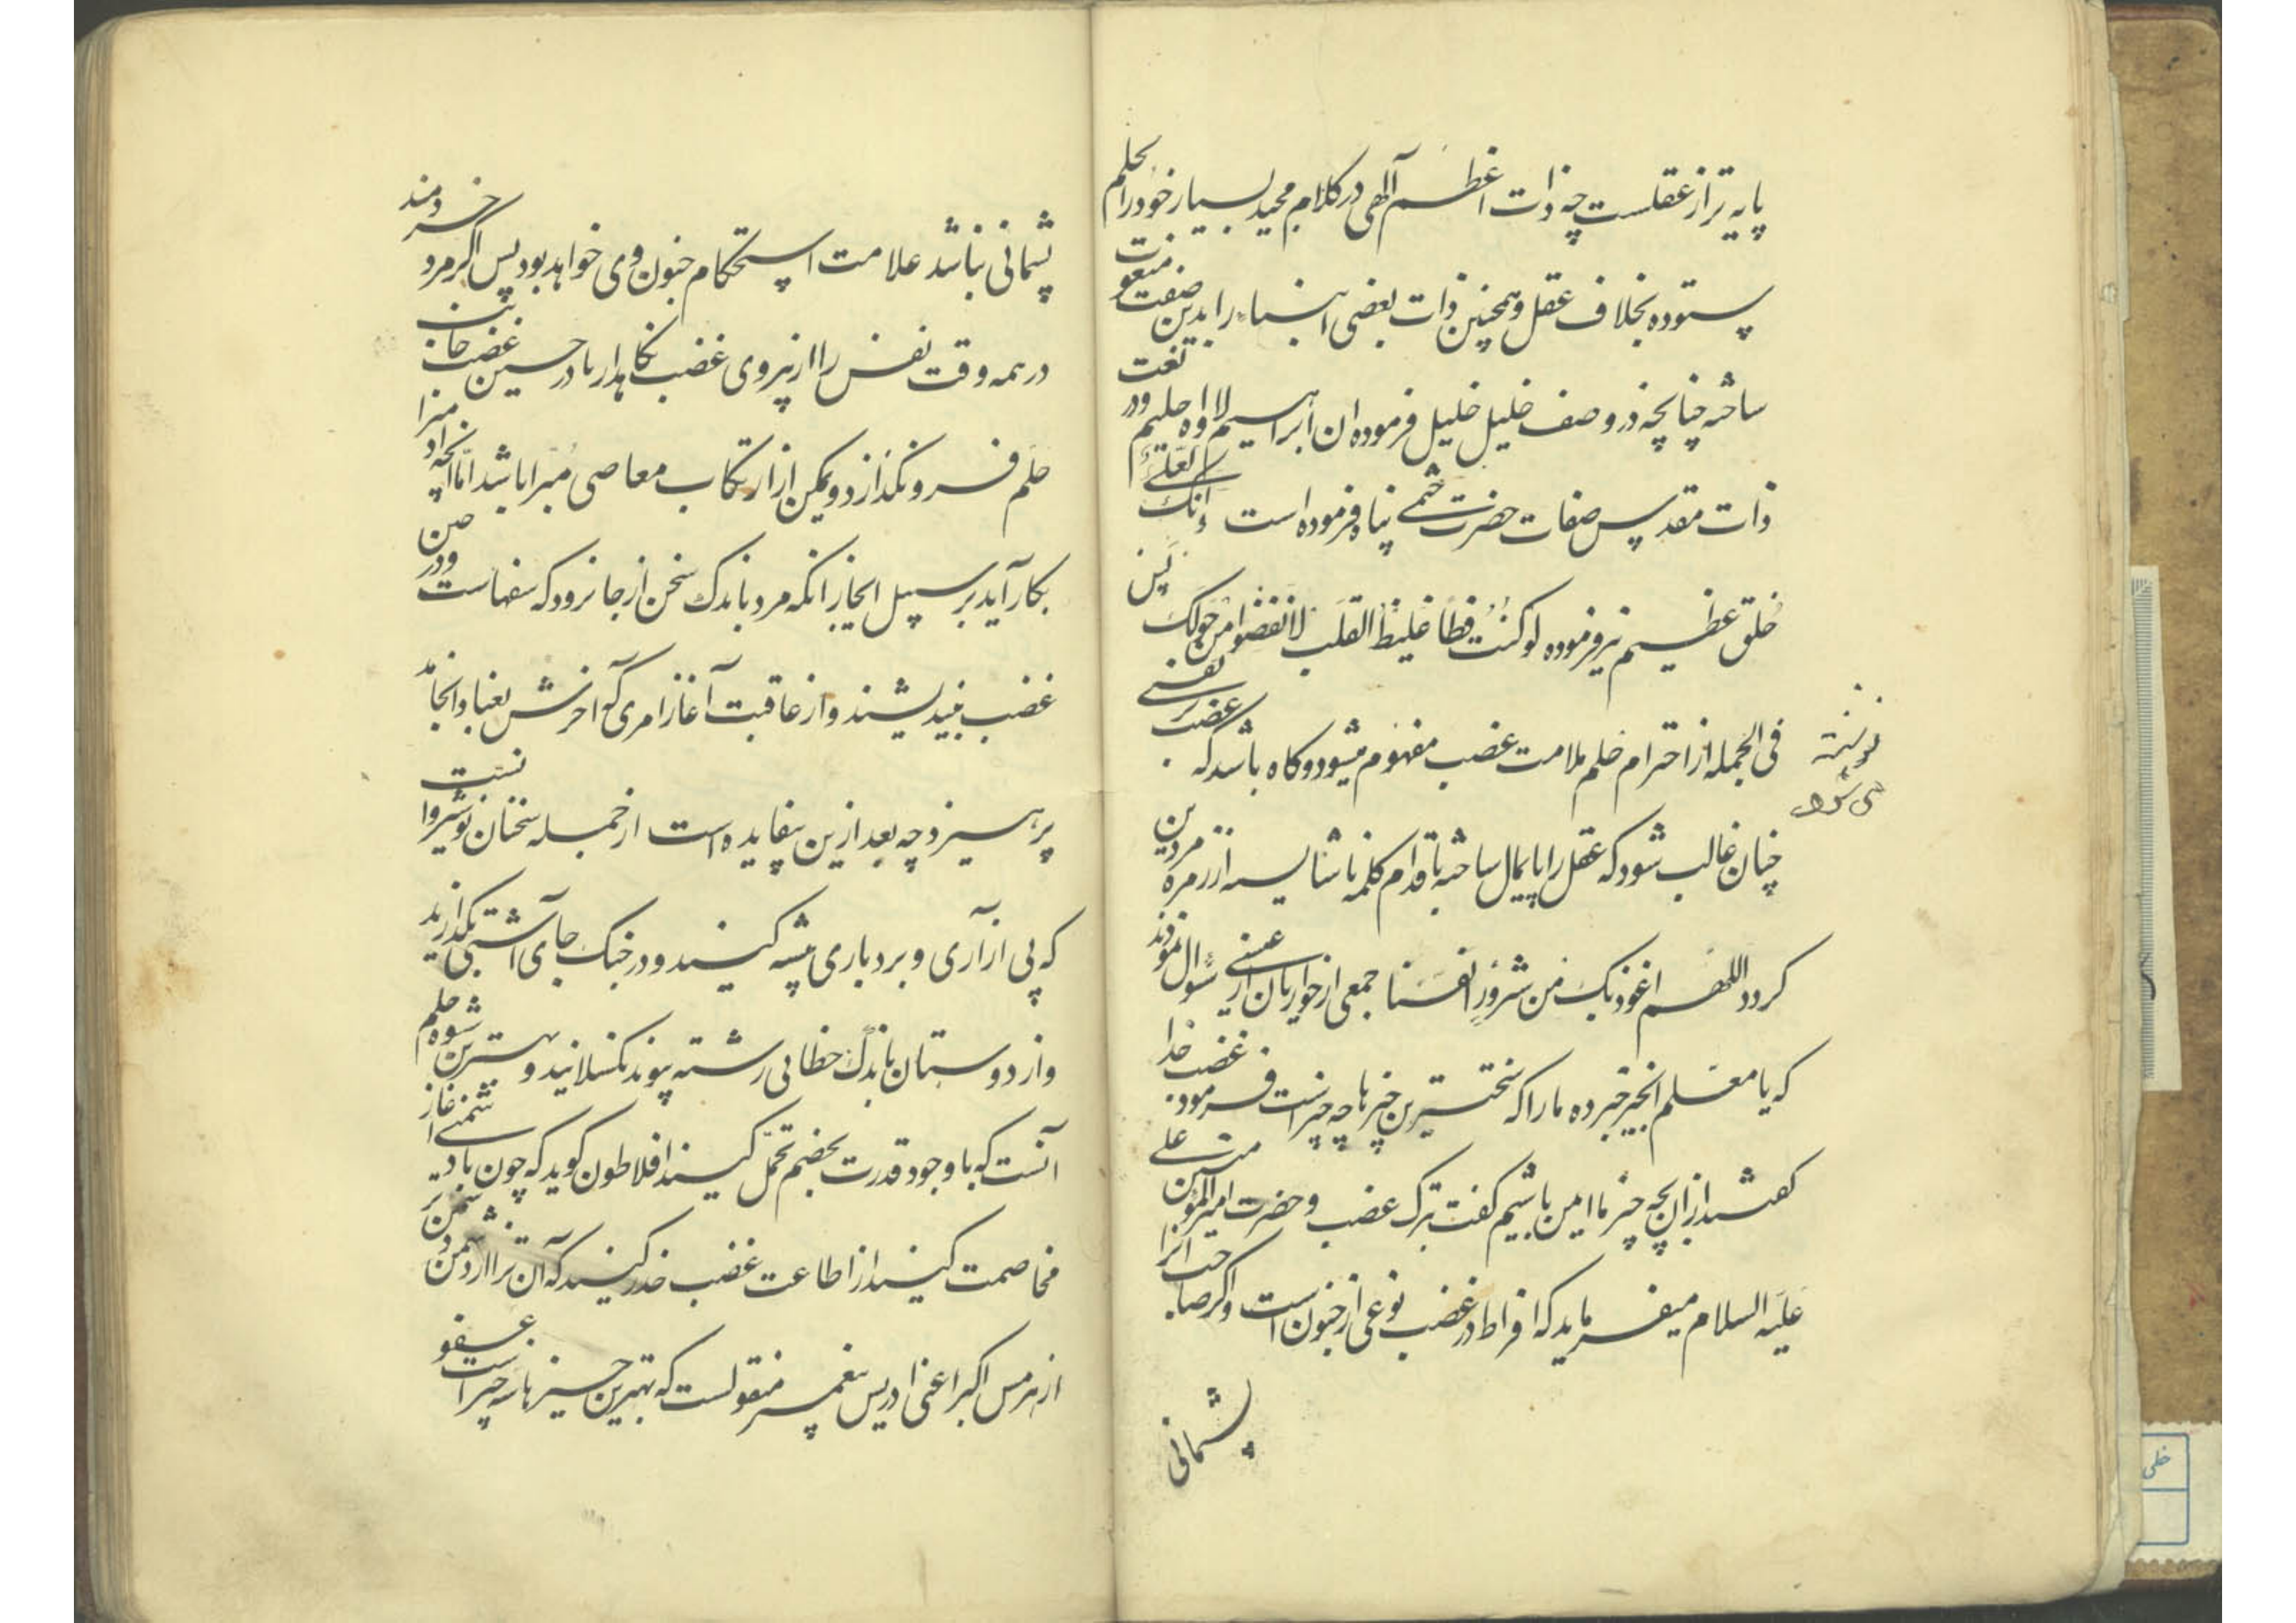 پایه تر از عقلست چه ذات اعظم آلهی در کلام مجید بسیار خود را بحلم
ستوده بخلاف عقل و همچنین ذات بعضی انبیاء را بدین صفت منعوت
ساخته چنانچه در وصف خلیل خلیل فرموده ان ابراهیم لاواه حلیم و در نعت
ذات مقدس صفات حضرت ختمی پناه فرموده است وانک لعلی
خلق عظیم نیز فرموده لو کنت فظا غلیظ القلب لانفضوا من حولک پس
فی الجمله از احترام حلم ملامت غضب مفهوم میشود و کاه باشد که غضب بر نفسی
چنان غالب شود که عقل را پایمال ساخته باقدام کلمه ناشایسته از زمره مردین
کردد اللهم اعوذ بک من شرور انفسنا جمعی از حواریان از عیسی سوال نمودند
که یا معلم الخیر خبر ده ما را که سختترین چیزها چه چیز است فرمود غضب خدا
کفتند از آن بچه چیز ما ایمن باشیم کفت بترک غضب و حضرت امیر المومنین علی
علیه السلام میفرماید که افراط در غضب نوعی از جنون است و اکر صاحب آنرا
پشمانی
نوشته
می شود
پشمانی نباشد علامت استحکام جنون وی خواهد بود پس اکر مرد خردمند
در همه وقت نفس را از نیروی غضب نکاهدارد تا در حین غضب جانب
حلم فرو نکذارد و یمکن از ارتکاب معاصی مبرا باشد اما آنچه او را
بکار آید بر سبیل ایجاز انکه مرد باندک سخن از جا نرود که سفهاست و در حین
غضب بیندیشند و از عاقبت آغاز امری که آخرش بعنا و انجامد
پرهیزد چه بعد ازین بیفایده است از جمله سخنان نوشیروانست
که پی از آری و بردباری پیشه کنید و در جنک جای آشتی بکذارید
و از دوستان باندک خطائی رشته پیوند نکسلانید و بهترین شیوه حلم
آنست که با وجود قدرت بخصم تحمل کنید افلاطون کوید که چون با دشمنی آغاز
مخاصمت کنید از اطاعت غضب حذر کنید که آن ترا از دشمن دشمن تر
از هرمس اکبر اعنی ادریس پیغمبر منقولست که بهترین چیزها سه چیز است عفو
خلی